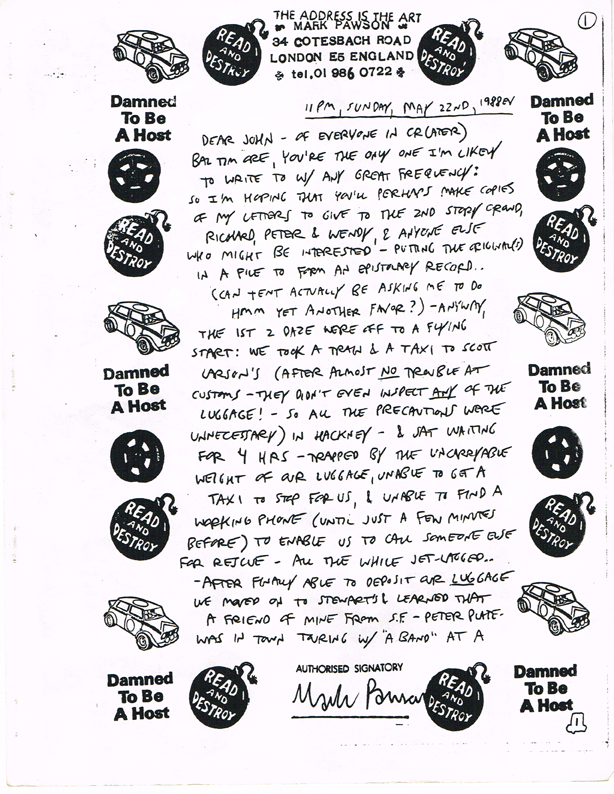 THE ADDRESS IS THE ART
MARK PAWSON
34 COTESBACH ROAD
LONDON E5 ENGLAND
tel. 01 986 0722
READ AND DESTROY
READ AND DESTROY
1
11PM, SUNDAY, MAY 22ND, 1988EV
Damned To Be A Host
Damned To Be A Host
DEAR JOHN - OF EVERYONE IN CR(ATER)
BAL TIM ORE, YOU'RE THE ONLY ONE I'M LIKELY
TO WRITE TO W/ ANY GREAT FREQUENCY:
SO I'M HOPING THAT YOU'LL PERHAPS MAKE COPIES
OF MY LETTERS TO GIVE TO THE 2ND STORY CROWD,
RICHARD, PETER & WENDY, & ANYONE ELSE
WHO MIGHT BE INTERESTED - PUTTING THE ORIGINAL(S)
IN A FILE TO FORM AN EPISTOLARY RECORD..
(CAN TENT ACTUALLY BE ASKING ME TO DO
HMM YET ANOTHER FAVOR?) - ANYWAY,
THE 1ST 2 DAZE WERE OFF TO A FLYING
START: WE TOOK A TRAIN & A TAXI TO SCOTT
LARSON'S (AFTER ALMOST NO TROUBLE AT
CUSTOMS - THEY DIDN'T EVEN INSPECT ANY OF THE
LUGGAGE! - SO ALL THE PRECAUTIONS WERE
UNNECESSARY) IN HACKNEY - & SAT WAITING
FOR 4 HRS - TRAPPED BY THE UNCARRYABLE
WEIGHT OF OUR LUGGAGE, UNABLE TO GET A
TAXI TO STOP FOR US, & UNABLE TO FIND A
WORKING PHONE (UNTIL JUST A FEW MINUTES
BEFORE) TO ENABLE US TO CALL SOMEONE ELSE
FOR RESCUE - ALL THE WHILE JET-LAGGED..
- AFTER FINALLY ABLE TO DEPOSIT OUR LUGGAGE
WE MOVED ON TO STEWART'S & LEARNED THAT
A FRIEND OF MINE FROM S.F. - PETER PLATE -
WAS IN TOWN TOURING W/ "A BAND" AT A
READ AND DESTROY
READ AND DESTROY
Damned To Be A Host
Damned To Be A Host
READ AND DESTROY
READ AND DESTROY
Damned To Be A Host
READ AND DESTROY
AUTHORISED SIGNATORY
Mark Pawson
READ AND DESTROY
Damned To Be A Host